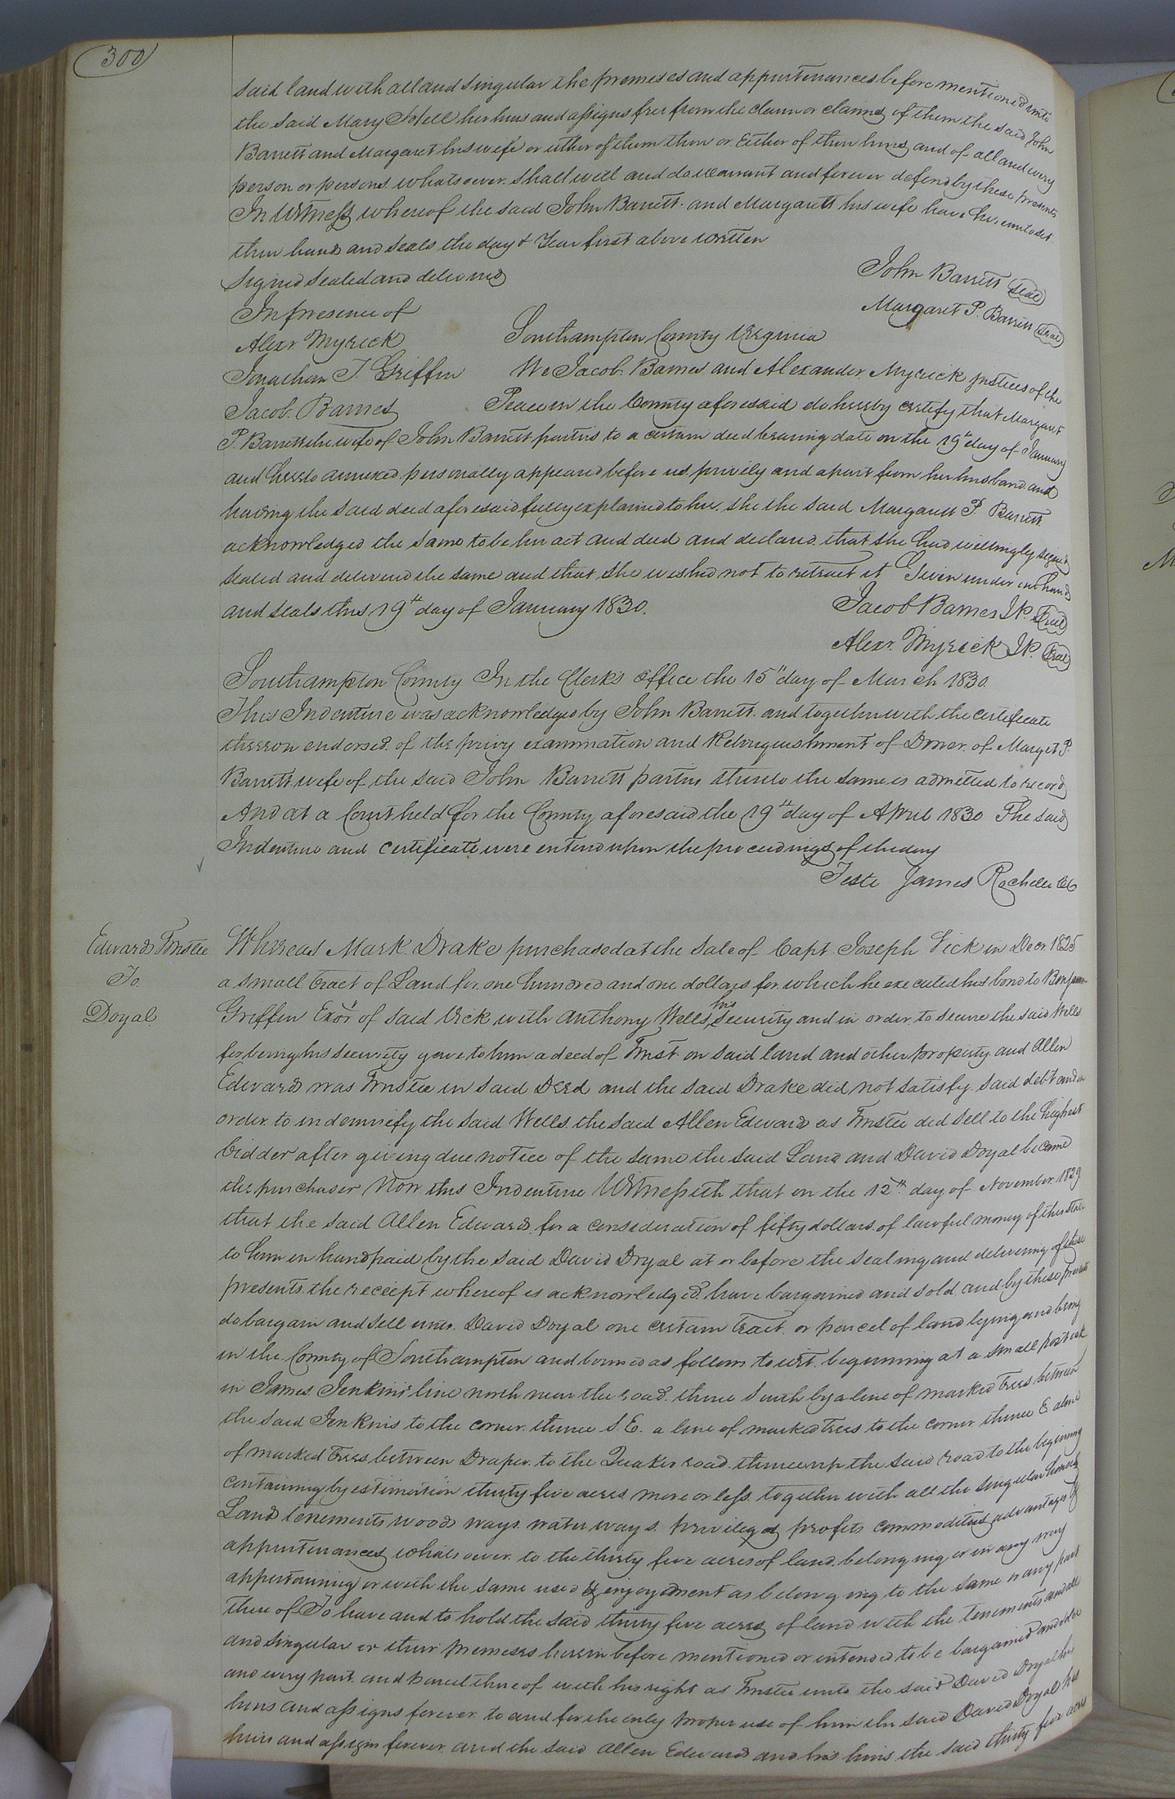 300
said land with all and singular the premises and appurtenances before mentioned unto
the said Mary Sotell her heirs and assigns free from the claim or claims of them the said John
Barrett and Margaret his wife or either of them them or Either of their heirs and of all and every
person or persons whatsoever shall will and do warrant and forever defend by these presents
In Witness whereof the said John Barrett and Margarett his wife have hereunto set
their hands and seals the day & Year first above written
Signed Sealed and delivered
John Barrett Seal
In presence of
Margaret P. Barrett Seal
Alexr Myrick
Southampton County Virginia
Jonathan T. Griffin We Jacob Barnes and Alexander Myrick justices of the
Jacob Barnes Peace in the County aforesaid do hereby certify that Margaret
P. Barrett the wife of John Barrett parties to a certain deed bearing date on the 19th day of January
and hereto annexed personally appeared before us privily and apart from her husband and
having the said deed aforesaid fully explained to her, she the said Margarett P. Barrett
acknowledged the same to be her act and deed and declared that she had willingly signed
sealed and delivered the same and that she wished not to retract it Given under our hands
and seals this 19th day of January 1830.
Jacob Barnes J.P. Seal
Alexr. Myrick J.P. Seal
Southampton County In the Clerks office the 15th day of March 1830
This Indenture was acknowledged by John Barrett and together with the certificate
thereon endorsed of the privy examination and Relinquishment of Dower of Marget P.
Barrett wife of the said John Barrett parties thereto the same is admitted to record
And at a Court held for the County aforesaid the 19th day of April 1830 The said
Indenture and certificate were entered upon the proceedings of the day
Teste James Rochelle Clk
Edwards Trustee
To
Doyal
Whereas Mark Drake purchased at the Sale of Capt Joseph Vick in Decr. 1825
a small tract of Land for one hundred and one dollars for which he executed his bond to Benjamin
Griffin Exor of said Vick with Anthony Wells his security and in order to secure the said Wells
for being his security gave to him a deed of Trust on said land and other property and Allen
Edwards was Trustee in said Deed and the said Drake did not satisfy said debt and in
order to indemnify the said Wells the said Allen Edwards as Trustee did sell to the highest
bidder after giving due notice of the same the said Land and David Doyal became
the purchaser Now this Indenture Witnesseth that on the 12th day of November 1829
that the said Allen Edwards for a consideration of fifty dollars of lawful money of this state
to him in hand paid by the said David Doyal at or before the sealing and delivering of these
presents the receipt whereof is acknowledged have bargained and sold and by these presents
do bargain and sell unto David Doyal one certain tract or parcel of land lying and being
in the County of Southampton and bound as follows to wit. beginning at a small post oak
in James Jenkins line north near the road. thence South by a line of marked trees between
the said Jenkins to the corner thence S.E. a line of marked trees to the corner thence E. a line
of marked trees between Draper to the Quaker road thence up the said road to the beginning
containing by estimation thirty five acres more or less together with all the singular houses
Lands tenements woods ways water ways privileges profits commodities advantages &
appurtenances whatsoever to the thirty five acres of land belonging or in any way
appertaining or with the same used & enjoyedment as belonging to the same or any part
there of To have and to hold the said thirty five acres of land with the tenements and all
and singular or their premises herein before mentioned or intended to be bargained and sold
and every part and parcel thereof with his right as Trustee unto the said David Doyal his
heirs and assigns forever to and for the only proper use of him the said David Doyal his
heirs and assigns forever and the said Allen Edwards and his heirs the said thirty five acres